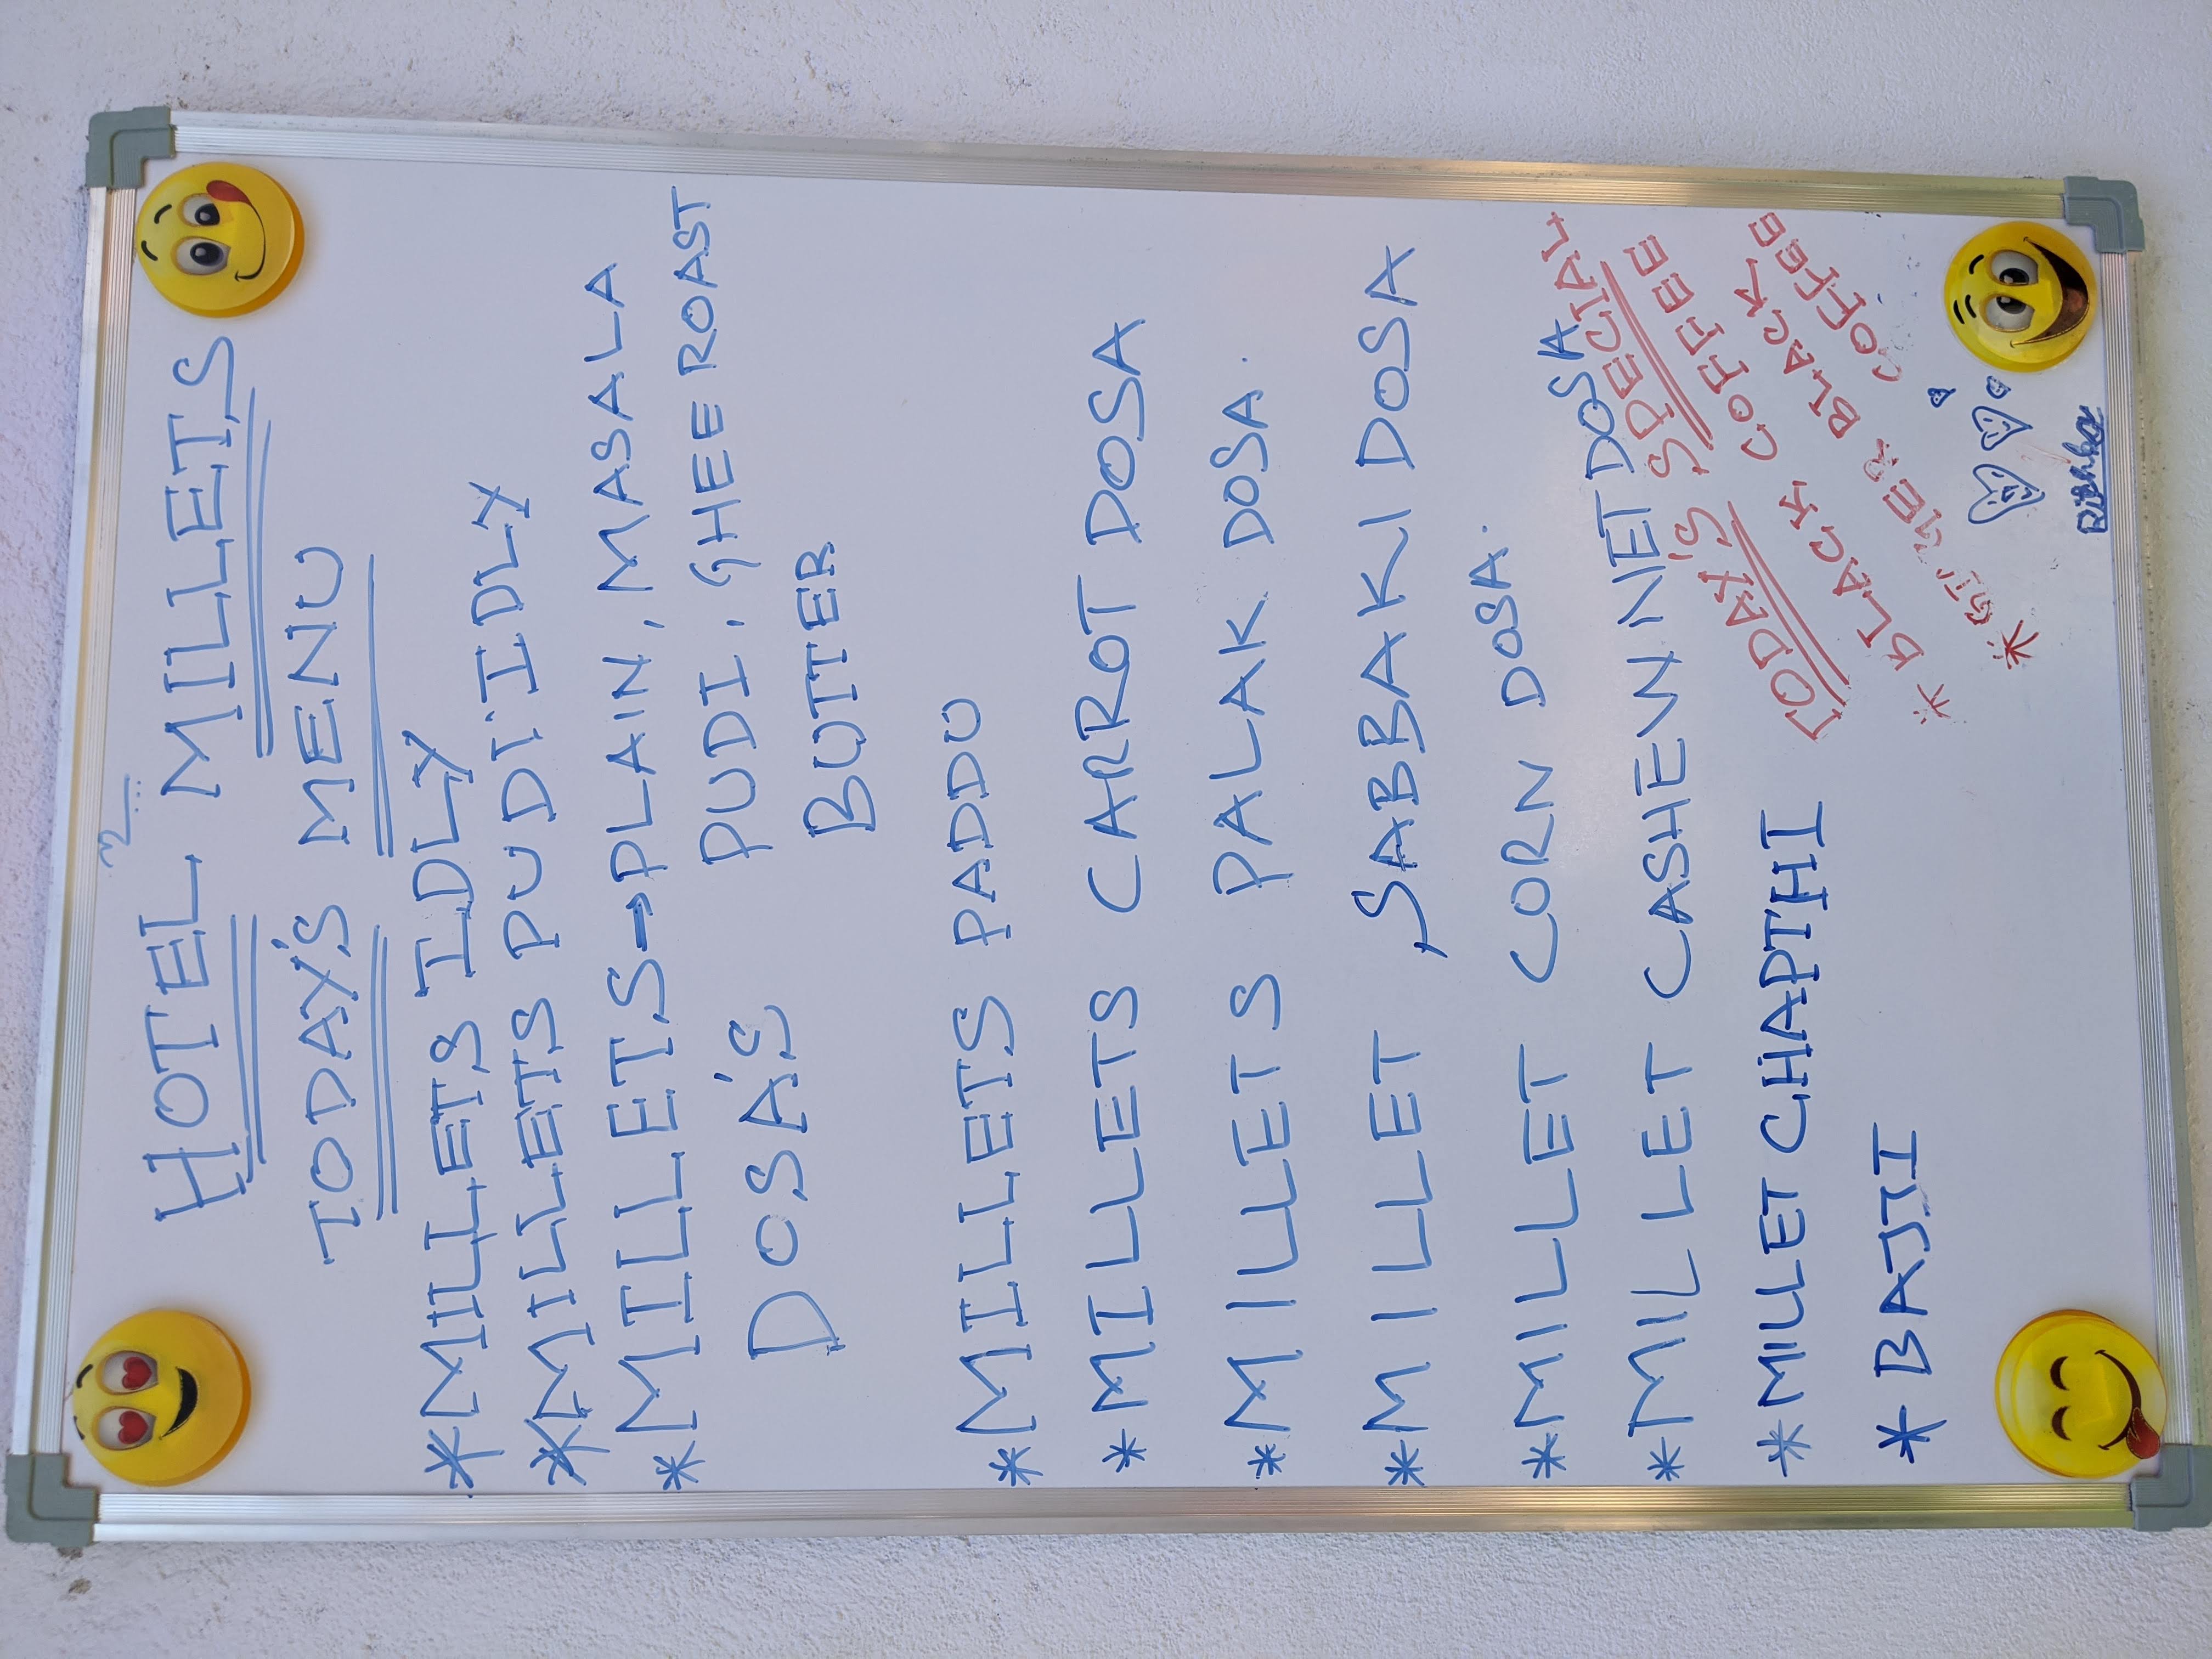 HOTEL MILLETS
TODAY'S MENU
* MILLETS IDLY
* MILLETS PUDI IDLY
* MILLETS → PLAIN, MASALA
DOSA'S PUDI, GHEE ROAST
BUTTER
* MILLETS PADDU
* MILLETS CARROT DOSA
* MILLETS PALAK DOSA.
* MILLET SABBAKI DOSA
* MILLET CORN DOSA.
* MILLET CASHEW NET DOSA
* MILLET CHAPTHI
* BAJJI
TODAY'S SPECIAL
* BLACK COFFEE
* GINGER BLACK
COFFEE